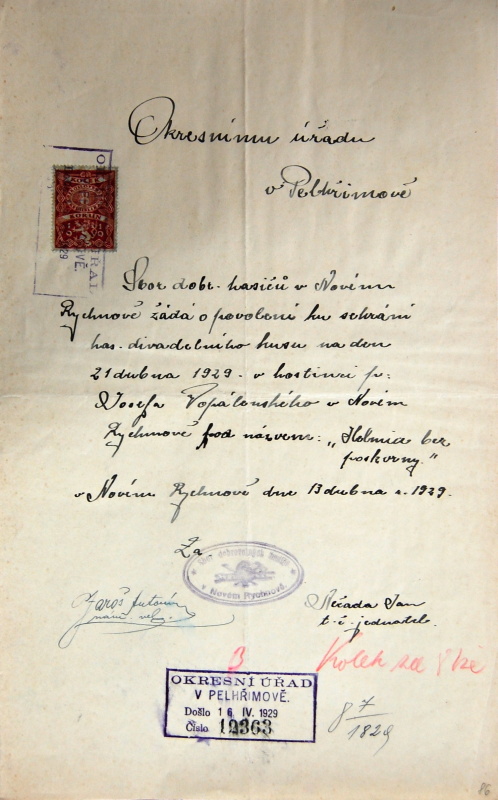 Okresnímu úřadu
v Pelhřimově
Sbor dobr. hasičů v Novém
Rychnově žádá o povolení ku sehrání
has. divadelního kusu na den
21 dubna 1929 v hostinci p:
Josefa Vopálenského v Novém
Rychnově pod názvem: „Helmia bez
poskvrny."
v Novém Rychnově dne 13 dubna r. 1929.
Za
Sbor dobrovolných hasičů
v Novém Rychnově
Jaroš Antonín
nám. vel.
Jan
t. č. jednatel.
Kolek za 8 Kč
B
OKRESNÍ ÚŘAD
V PELHŘIMOVĚ.
Došlo 16. IV. 1929
Číslo 12363
86